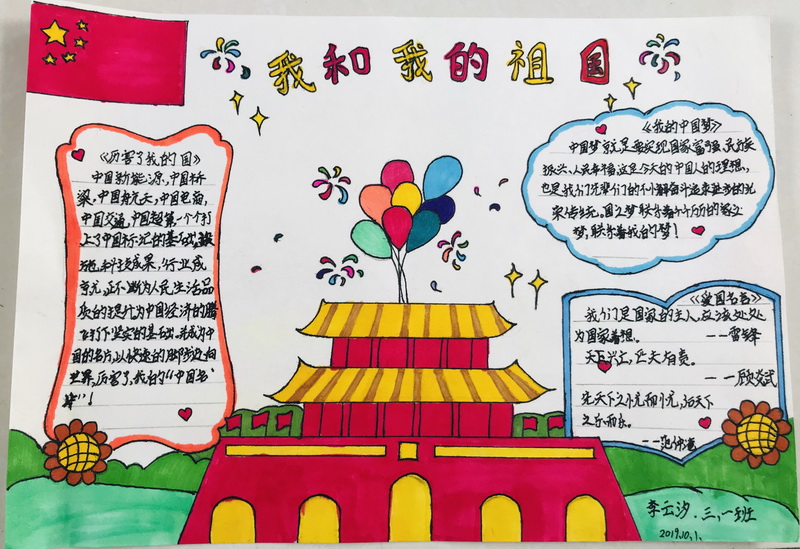 我和我的祖国
《厉害了我的国》
中国新能源,中国桥
梁,中国航天,中国
中国交通,中国超 一个个打
上了中国标记的基础
施,科技成果,行业成
为人民生活品
中国经济的腾
飞打下坚实的基础
国的名片,以快速的脚步迈向
世界,厉害了,我的“中国名
《我的中国梦》
中国梦就是要实现国家富强、民族
振兴、人民幸福这是今天的中国人的理想,
也是我们先辈们的不懈奋斗追求进步的光
荣传统,国之梦联
梦,联 我的梦!
《爱国名言》
我们是国家的主人,应该处处
为国家着想。
——雷锋
天下兴亡,匹夫有责。
——顾炎武
先天下之忧而忧,后天下
之乐而乐。
——范仲淹
李云汐.三,一班
2019.10.1.